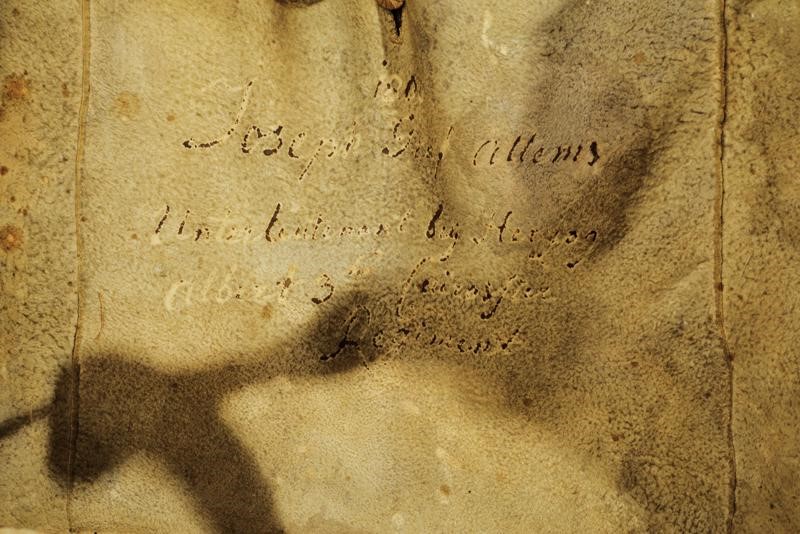 Joseph Graf Attems
Unterleutenant by Herzog
Albert 3
Regiment